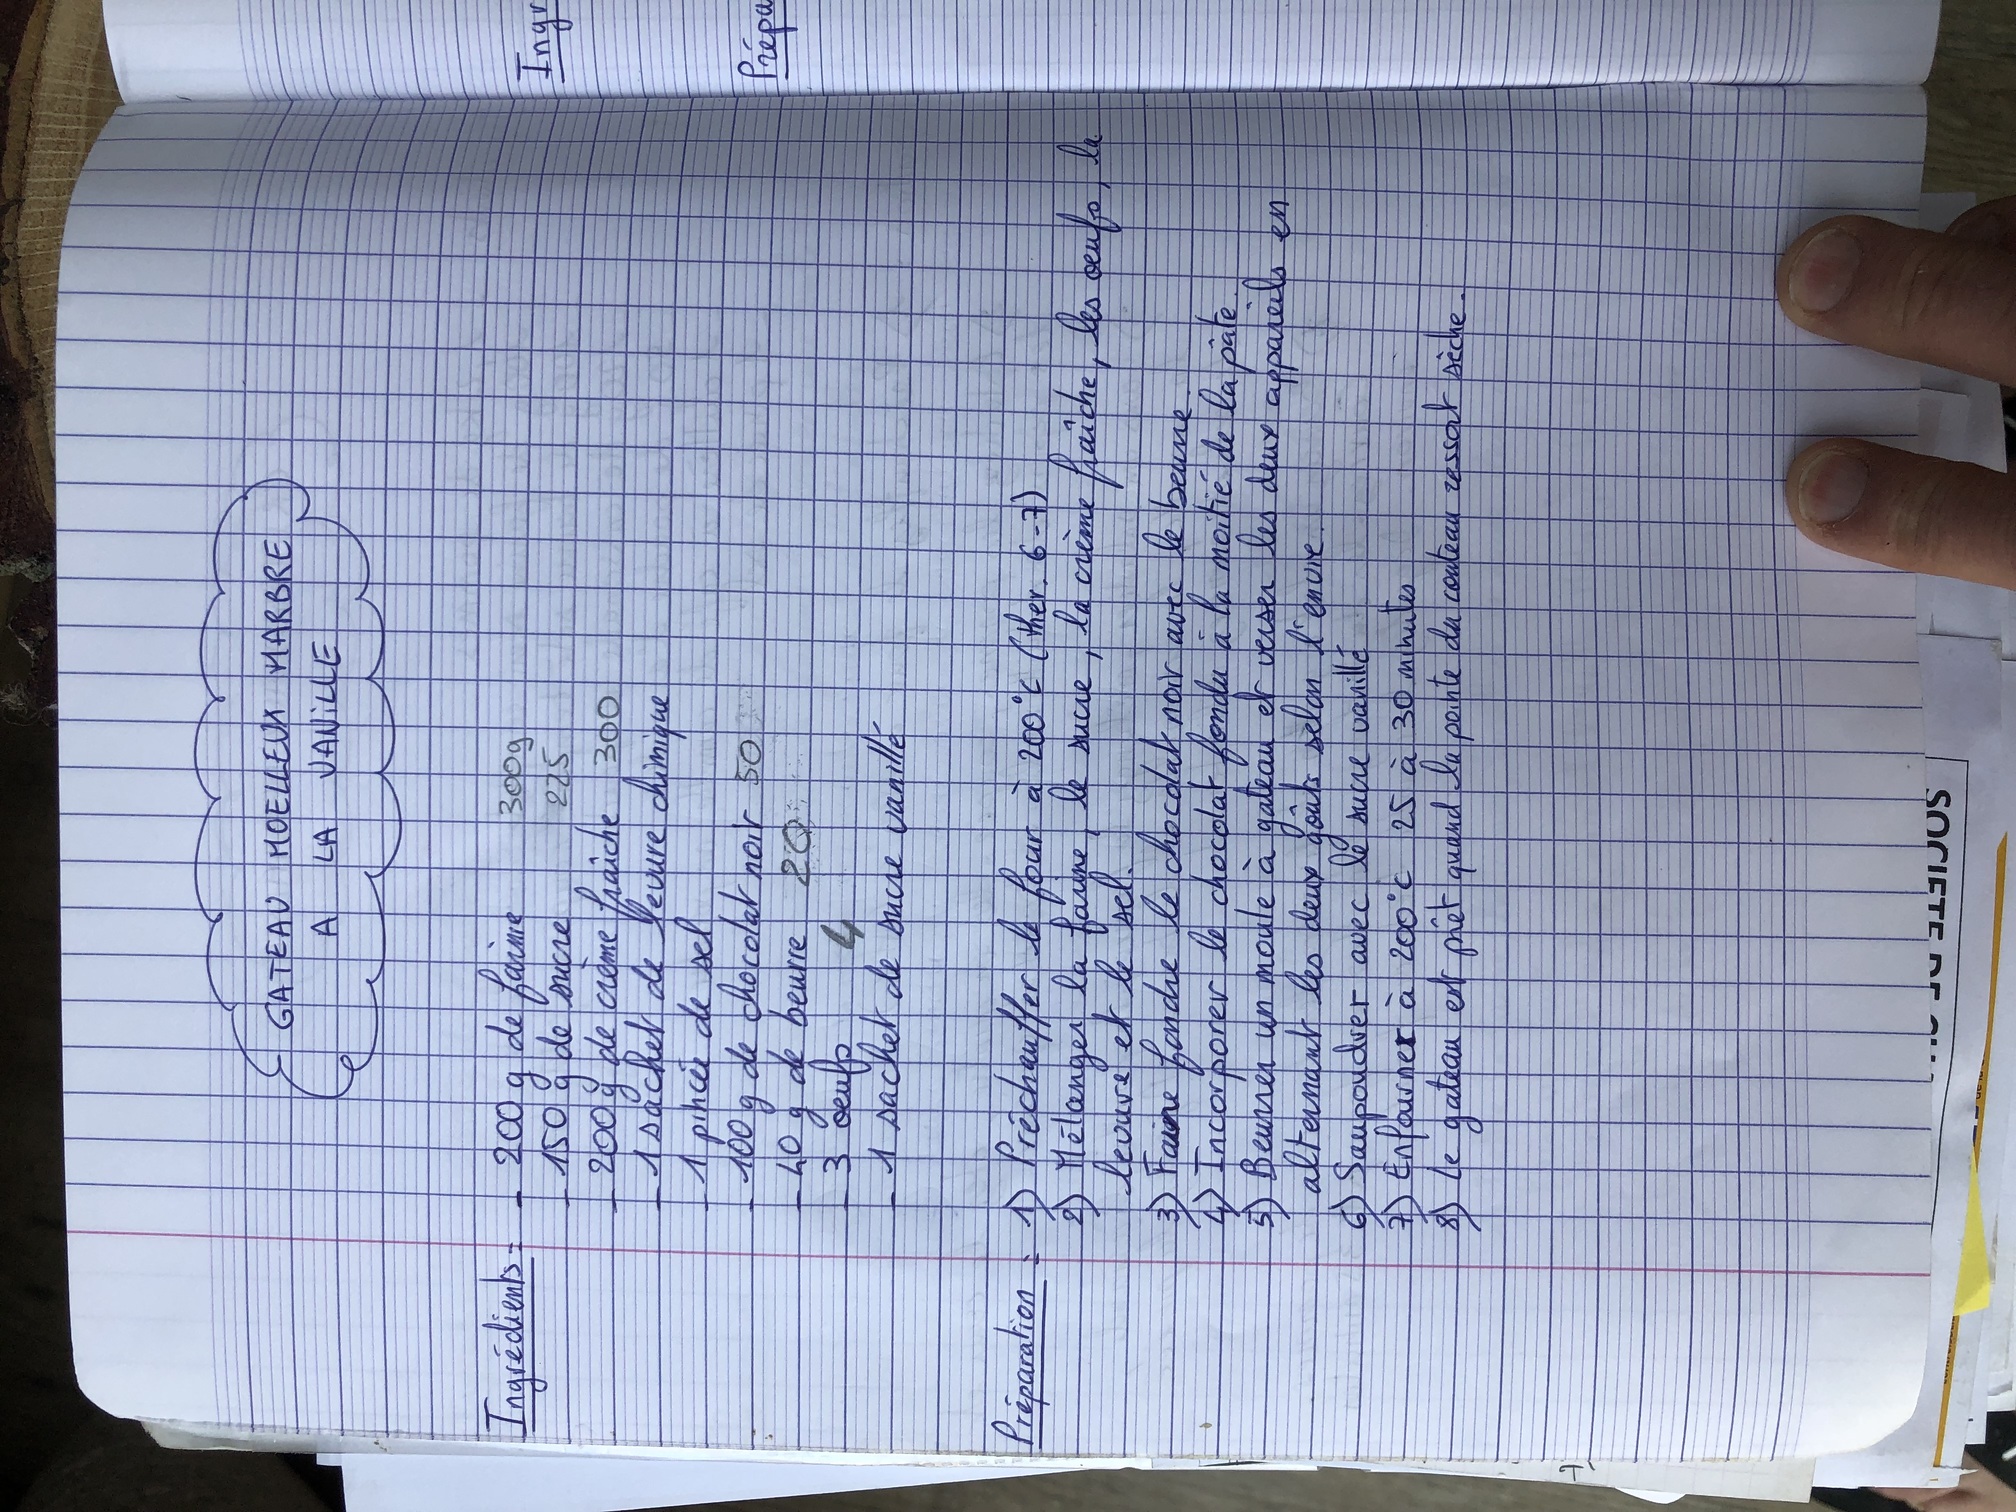 GATEAU MOELLEUX MARBRE
A LA VANILLE
Ingrédients :
- 200 g de farine 300g
- 150 g de sucre 225
- 200 g de crème fraîche 300
- 1 sachet de levure chimique
- 1 pincée de sel
- 100 g de chocolat noir 50
- 40 g de beurre 20
- 3 oeufs 4
- 1 sachet de sucre vanillé
Préparation :
1) Préchauffer le four à 200°C (ther. 6-7)
2) Mélanger la farine, le sucre, la crème fraîche, les oeufs, la
levure et le sel.
3) Faire fondre le chocolat noir avec le beurre.
4) Incorporer le chocolat fondu à la moitié de la pâte.
5) Beurrer un moule à gateau et verser les deux appareils en
alternant les deux goûts selon l'envie.
6) Saupoudrer avec le sucre vanillé
7) Enfourner à 200°C 25 à 30 minutes
8) Le gateau est prêt quand la pointe du couteau ressort sèche.
Ingr
Prépa
SOCIETE DE